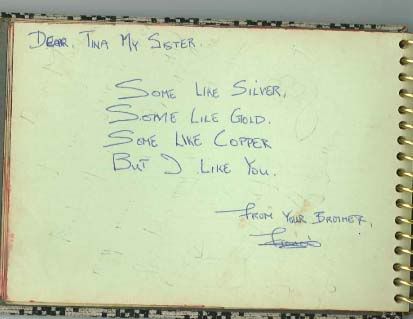 Dear. Tina My Sister.
Some Like Silver,
Some Lile Gold.
Some Like Copper
But I Like You.
From Your Brother,
Francis